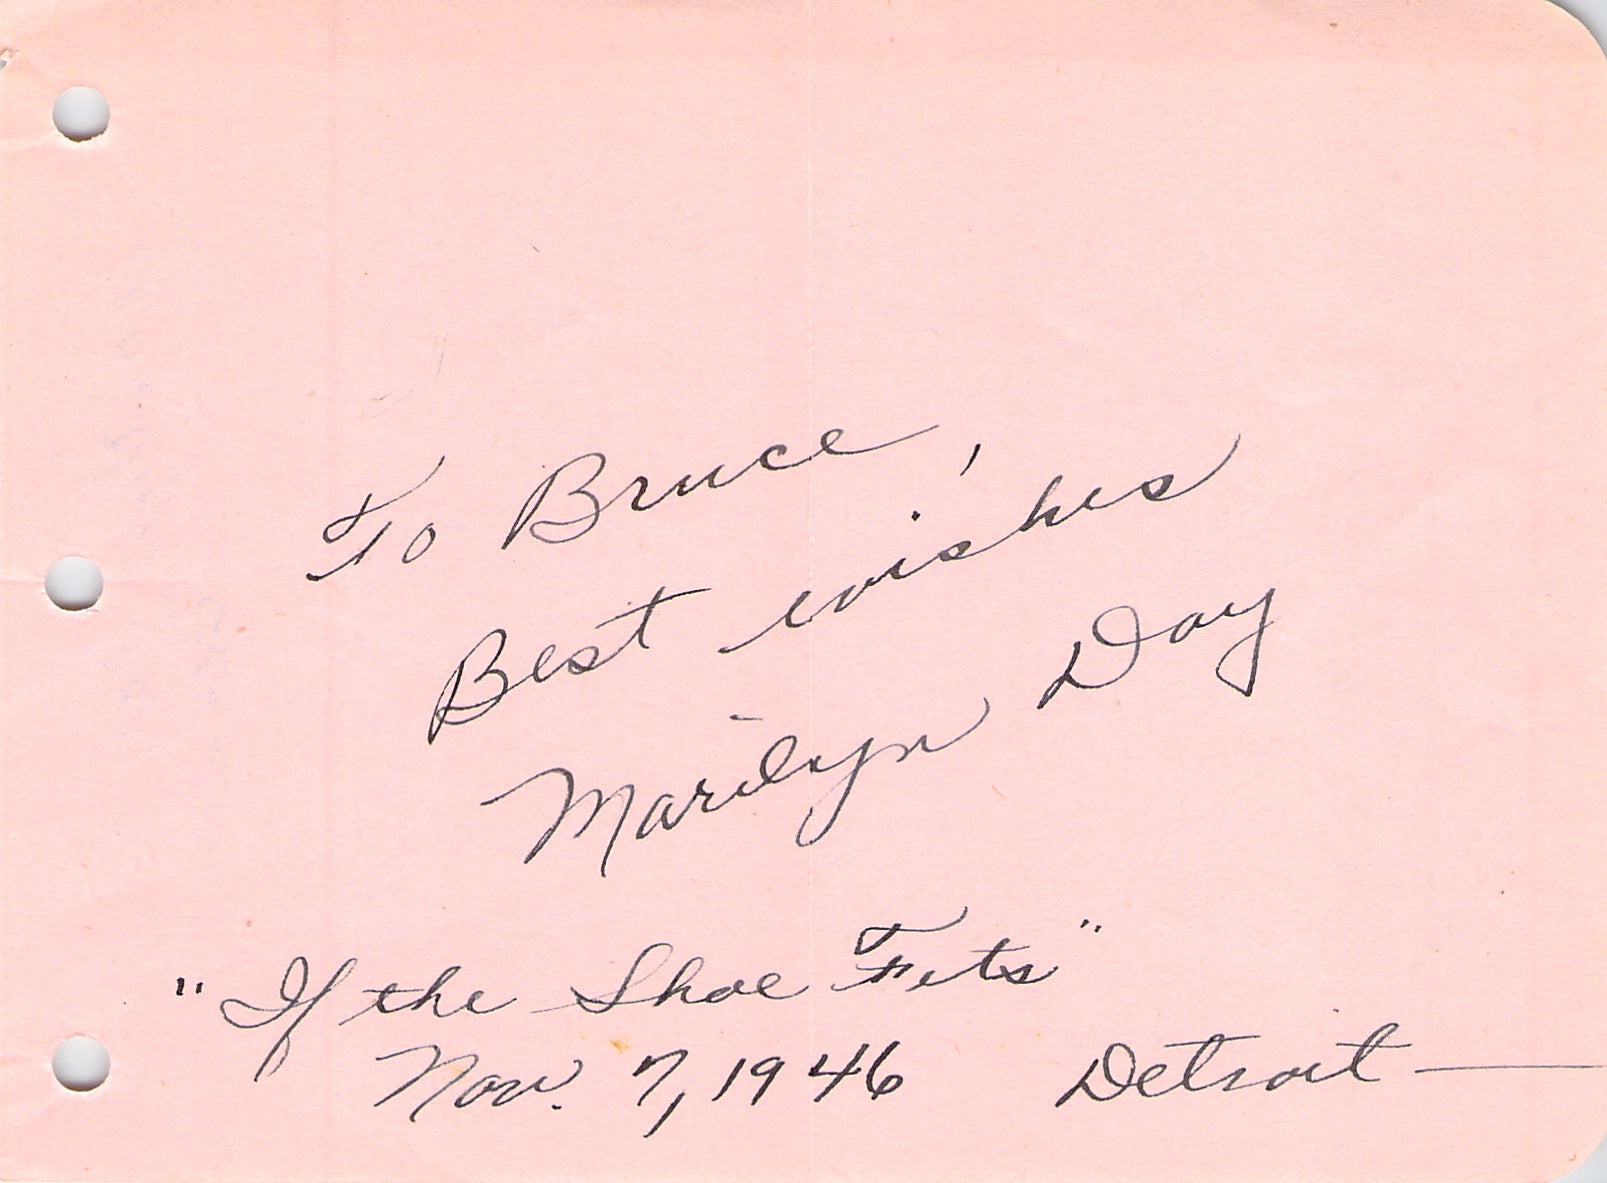 To Bruce,
Best wishes
Marilyn Day
"If the Shoe Fits"
Nov. 7, 1946 Detroit —